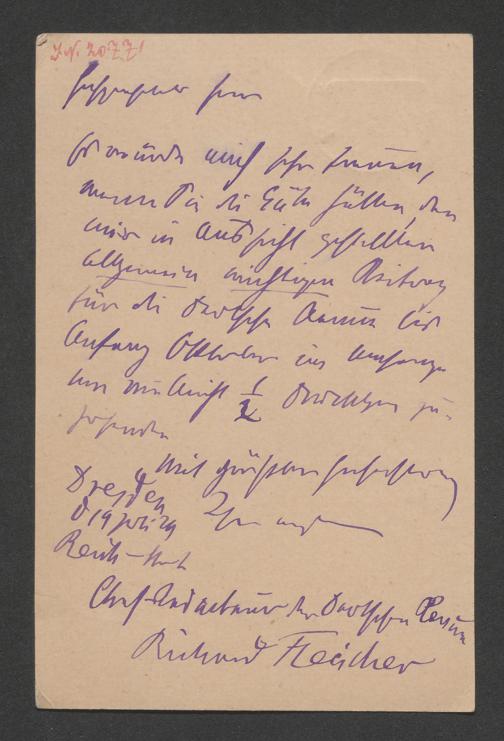 J.N. 20771
Hochgeehrter Herr
Es würde mich sehr freuen,
wenn Sie die Güte hätten, den
mir in Aussicht gestellten
allgemein wichtigen Beitrag
für die Deutsche Revue bis
Anfang Oktober im Umfange
von 1/2 Druckbogen zu-
zusenden
Mit größter Hochachtung
Dresden
d 19 Juli
Ihr ergebener
Chef-Redacteur der Deutschen Revue
Richard Fleischer